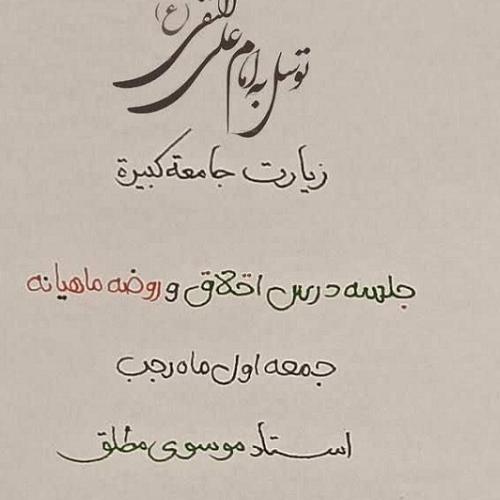 توسل به امام علی النقی (ع)
زیارت جامعة کبیرة
جلسه درس اخلاق و روضه ماهیانه
جمعه اول ماه رجب
استاد موسوی مطلق